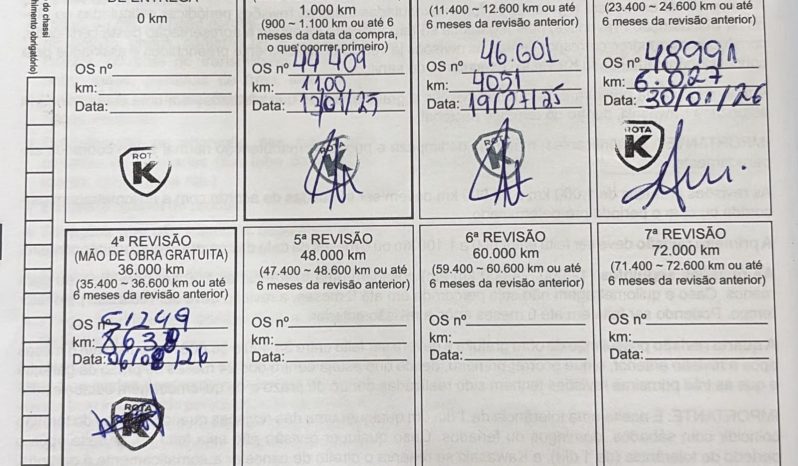 do chassi
himento obrigatório)
DE ENTREGA
0 km
OS nº
km:
Data:
ROTA
K
1.000 km
(900 ~ 1.100 km ou até 6
meses da data da compra,
o que ocorrer primeiro)
OS nº 44 409
km: 1100
Data: 13/01/25
ROTA
K
(11.400 ~ 12.600 km ou até
6 meses da revisão anterior)
OS nº 46.601
km: 4051
Data: 19/07/25
K
(23.400 ~ 24.600 km ou até
6 meses da revisão anterior)
OS nº 48991
km: 6.027
Data: 30/01/26
ROTA
K
4ª REVISÃO
(MÃO DE OBRA GRATUITA)
36.000 km
(35.400 ~ 36.600 km ou até
6 meses da revisão anterior)
OS nº 51249
km: 8638
Data: 06/08/26
ROTA
K
5ª REVISÃO
48.000 km
(47.400 ~ 48.600 km ou até
6 meses da revisão anterior)
OS nº
km:
Data:
6ª REVISÃO
60.000 km
(59.400 ~ 60.600 km ou até
6 meses da revisão anterior)
OS nº
km:
Data:
7ª REVISÃO
72.000 km
(71.400 ~ 72.600 km ou até
6 meses da revisão anterior)
OS nº
km:
Data: